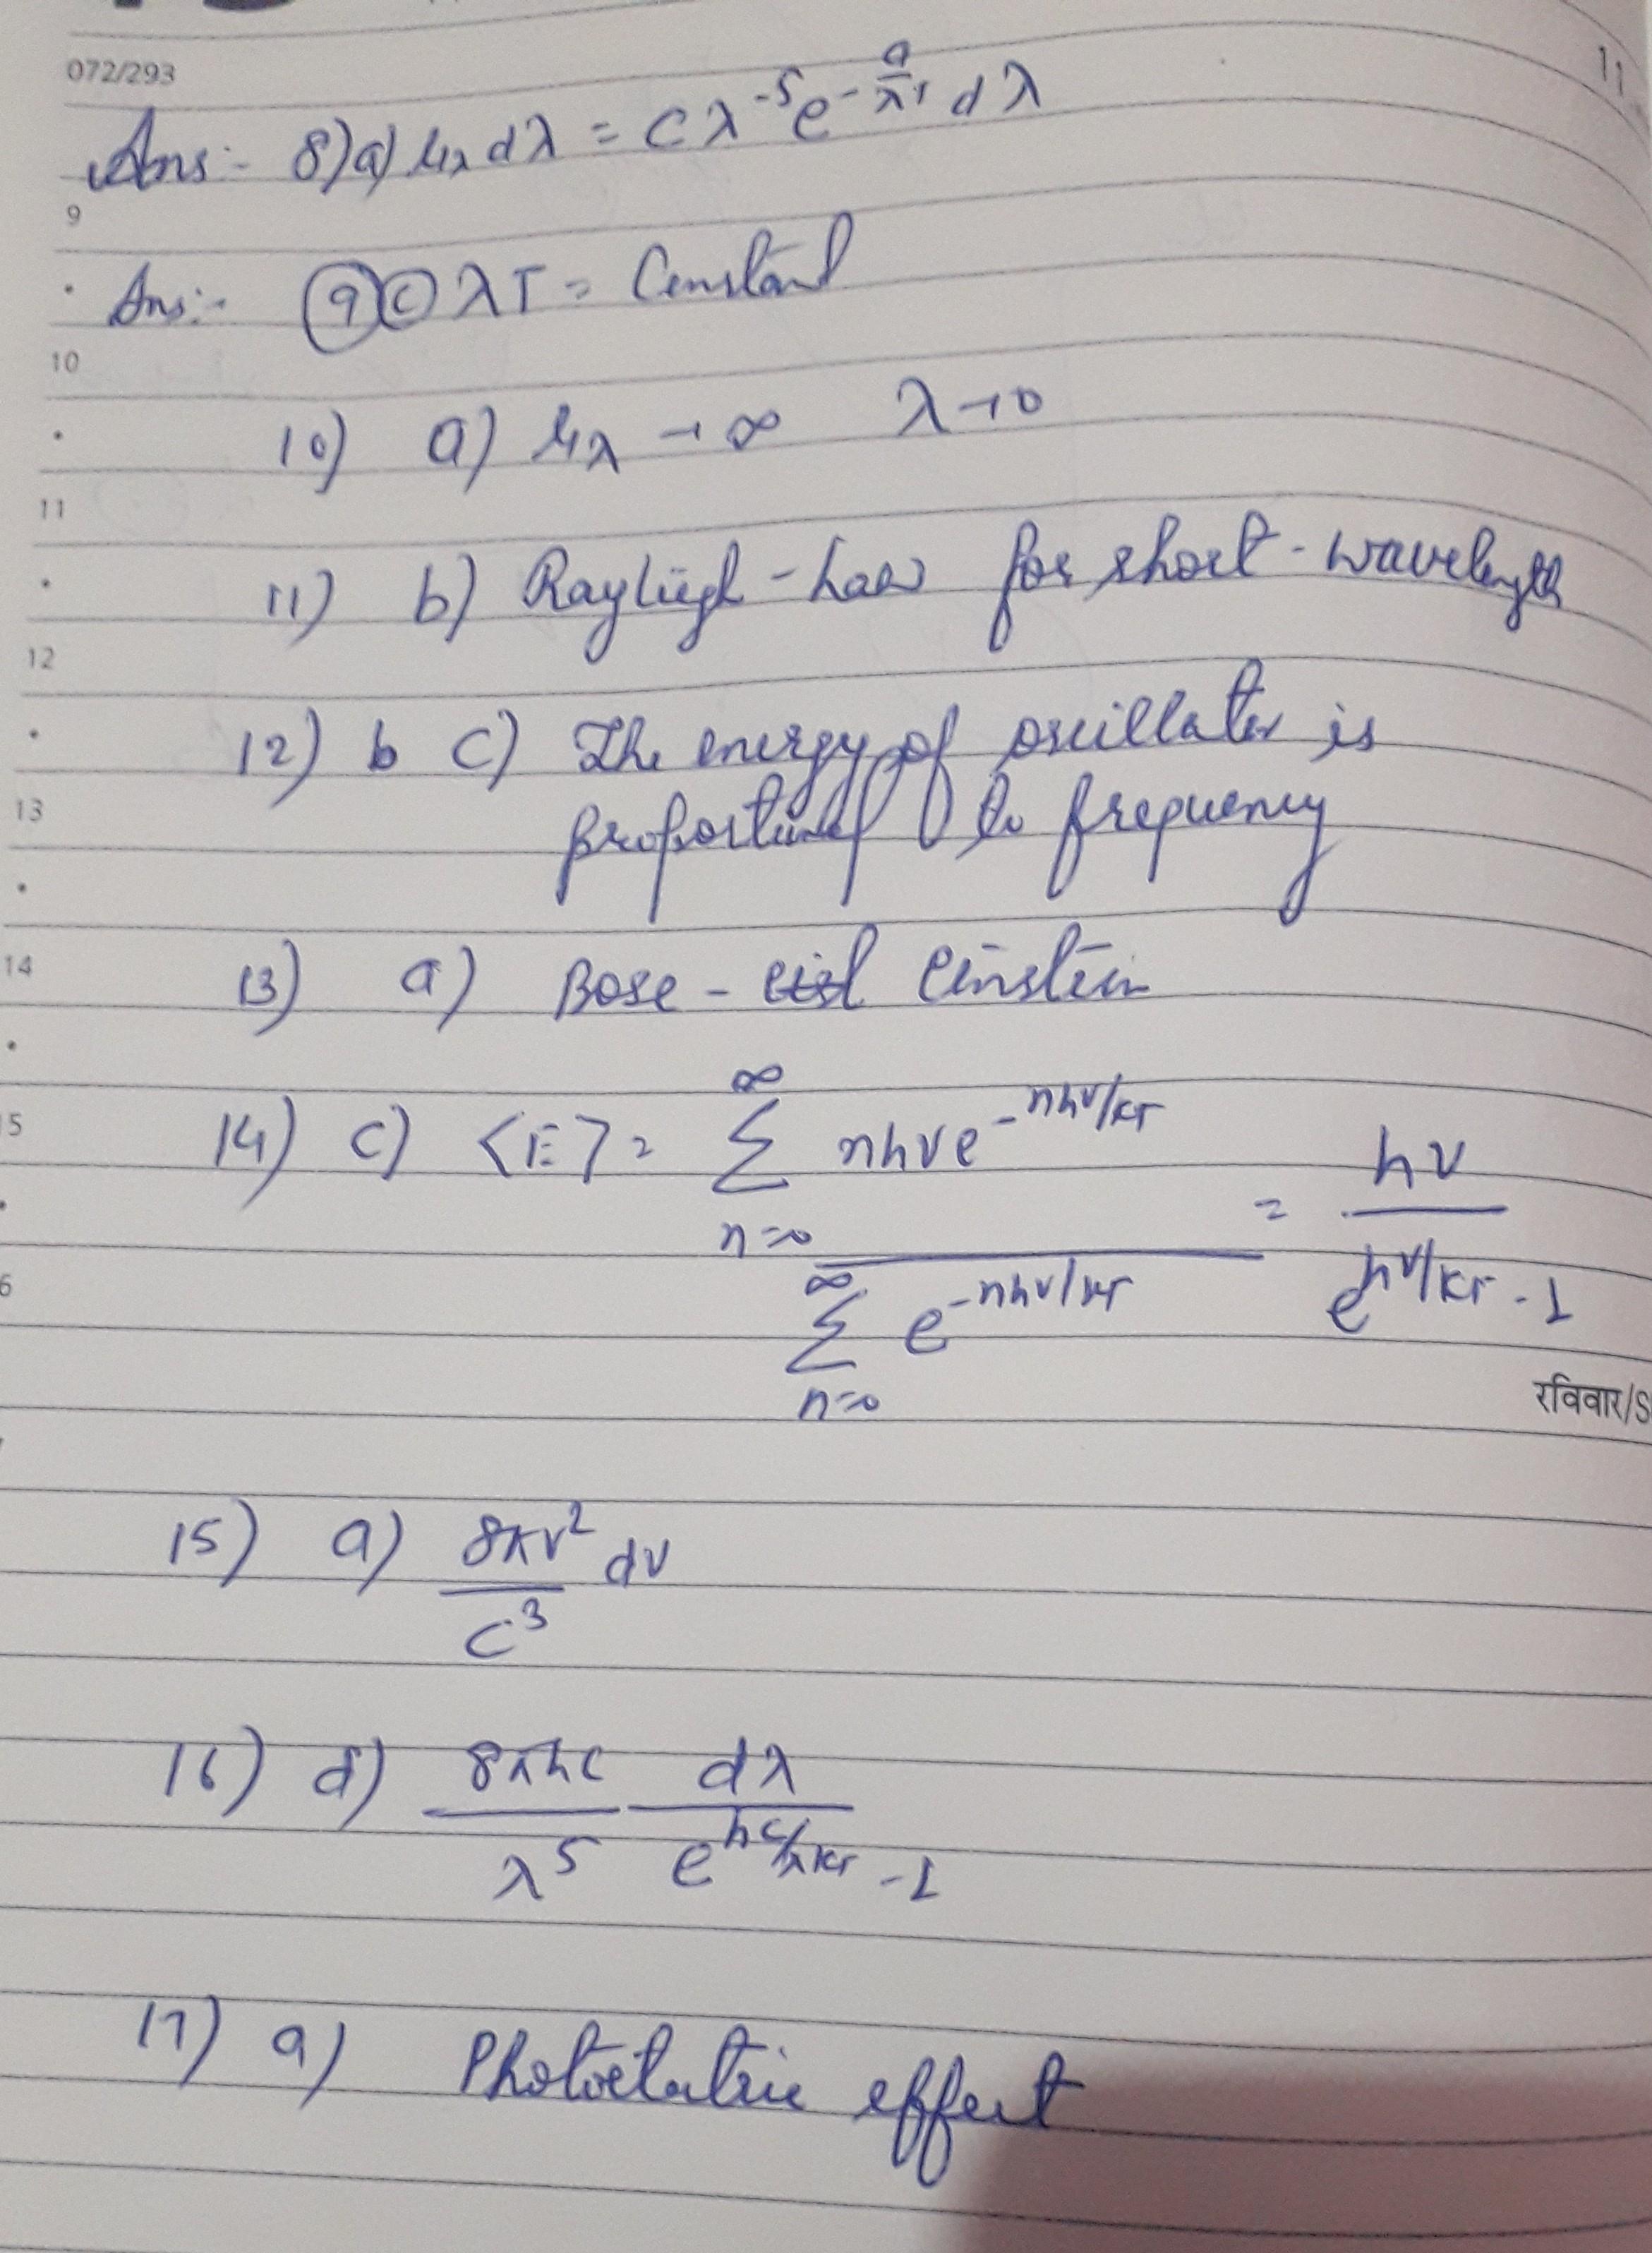 072/293
Ans:- 8) a) u_λ dλ = Cλ^-5 e^-a/λT dλ
9
Ans:- 9 c λT = Constant
10
10) a) u_λ → ∞ λ → 0
11
11) b) Rayliegh - Law for short - wavelength
12
12) b c) The energy of oscillator is
13
proportional to frequency
14
13) a) Bose - Einstein
15
14) c) <E> = ∑_{n=0}^{∞} nhν e^{-nhν/kT} / ∑_{n=0}^{∞} e^{-nhν/kT} = hν / e^{hν/kT} - 1
6
रविवार/S
15) a) 8πν² / c³ dν
16) d) 8πhc / λ⁵ dλ / e^{hc/λkT} - 1
17) a) Photoelectric effect